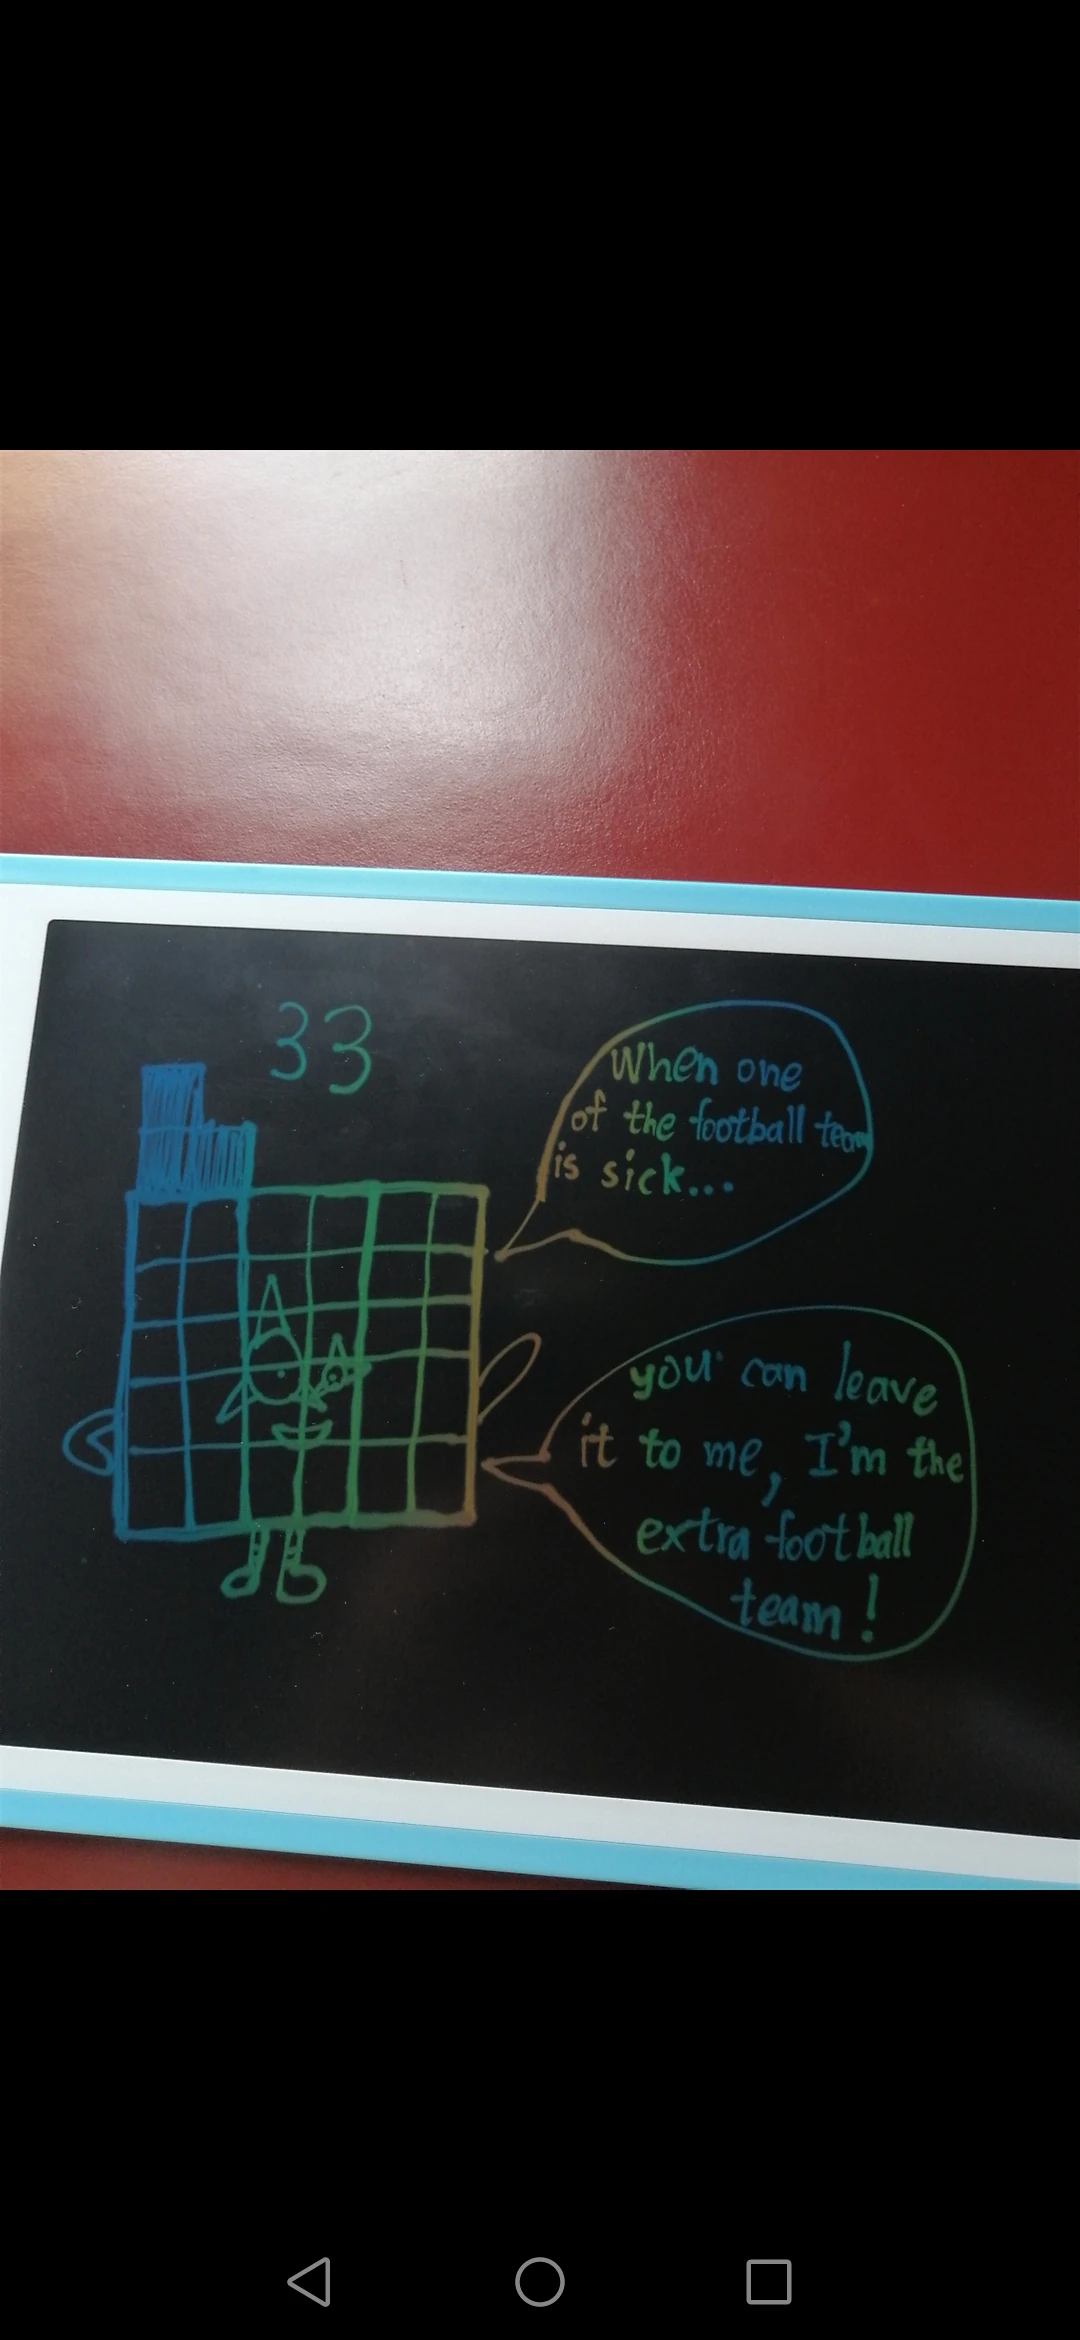 33
When one
of the football team
is sick...
you can leave
it to me, I'm the
extra football
team!